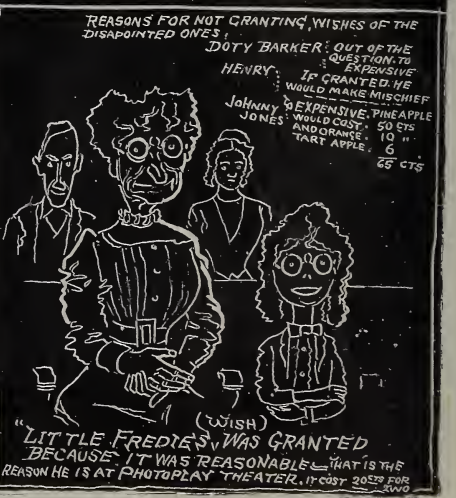 REASONS FOR NOT GRANTING, WISHES OF THE
DISAPOINTED ONES,
DOTY BARKER: OUT OF THE
QUESTION. TO
EXPENSIVE
HENRY: IF GRANTED. HE
WOULD MAKE MISCHIEF
JOHNNY JONES EXPENSIVE. PINEAPPLE
WOULD COST. 50 CTS
AND ORANGE. 10 "
TART APPLE. 6
65 CTS
(WISH)
"LITTLE FREDIE'S WAS GRANTED
BECAUSE IT WAS REASONABLE — THAT IS THE
REASON HE IS AT PHOTOPLAY THEATER. IT COST 20CTS FOR
TWO